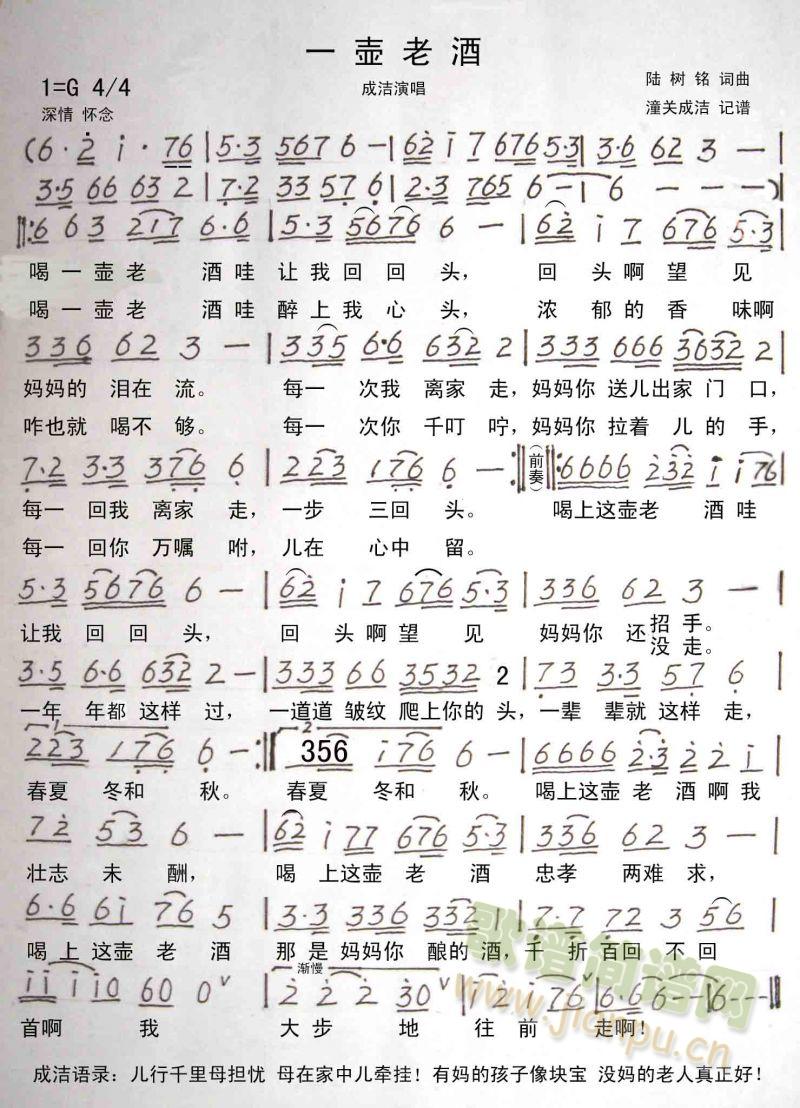 一壶老酒
1=G 4/4
成洁演唱
陆树铭 词曲
深情 怀念
潼关成洁 记谱
(6·2 i·76|5·3 5676 6—|62 i7 676 5·3|3·6 62 3—|
3·5 66 63 2|7·2 33 57 6|2·3 765 6—|6———)|
‖:6 63 217 6·6|5·3 5676 6—|62 i7 676 5·3|
喝一壶老 酒哇 让我回回头, 回头啊望见
喝一壶老 酒哇 醉上我心头, 浓郁的香味啊
336 62 3—|335 6·6 632 2|333 666 3632 2|
妈妈的 泪在流。 每一 次我 离家走,妈妈你 送儿出家门口,
咋也就 喝不够。 每一 次你 千叮咛,妈妈你 拉着儿的手,
7·2 33 376 6|223 176 6—:‖(前奏)‖:6666 232 i i76|
每一 回我 离家 走, 一步 三回头。 喝上这壶老 酒哇
每一 回你 万嘱 咐, 儿在 心中留。
5·3 5676 6—|62 i7 676 5·3|336 62 3—|
让我 回回头, 回头啊望见 妈妈你 还招手。
没走。
3·5 6·6 632 2—|333 66 3532 2|73 3·3 57 6|
一年 年都 这样 过, 一道道 皱纹 爬上你的 头,一辈 辈就 这样 走,
1
2
223 176 6—:‖356 i76 6—|6666 2·3 2 2 i|
春夏 冬和 秋。 春夏 冬和 秋。 喝上这壶 老 酒啊我
72 535 6—|62 i77 676 5·3|336 62 3—|
壮志 未 酬, 喝 上这壶 老 酒 忠孝 两难 求,
6·6 6i 76 5|3·3 335 61 2|7·7 72 3 56|
喝上 这壶 老 酒 那是 妈妈你 酿的 酒,千折 百回 不回
渐慢
i i i i0 60 0∨|2 2 2 30∨|2 i2 i 76∨|6·6 6—|6———‖
首啊 我 大步 地 往前 走啊!
歌谱简谱网
www.jianpu.cn
成洁语录:儿行千里母担忧 母在家中儿牵挂!有妈的孩子像块宝 没妈的老人真正好!